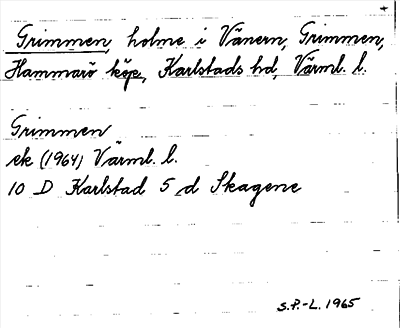 Grimmen, holme i Vänern, Grimmen,
Hammarö köp, Karlstads hd, Värml. l.
Grimmen
ek (1964) Värml. l.
10 D Karlstad 5 d Skagene
S.P.-L. 1965